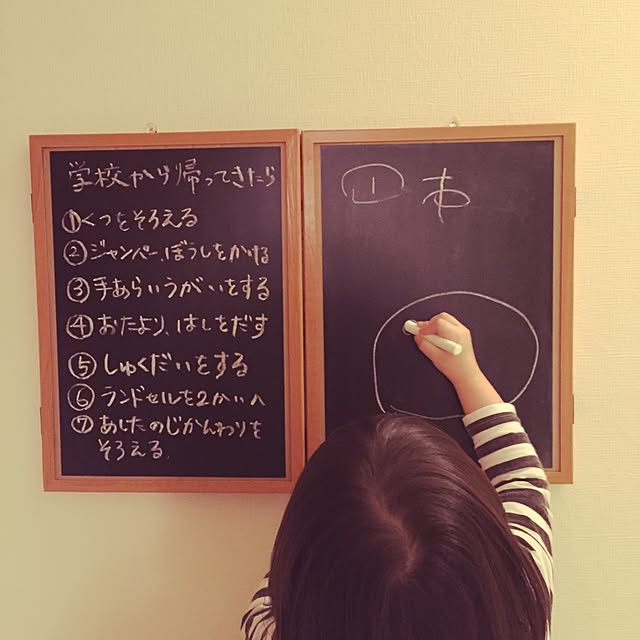 学校から帰ってきたら
①くつをそろえる
②ジャンパー、ぼうしをかける
③手あらいうがいをする
④おたより、はしをだす
⑤しゅくだいをする
⑥ランドセルを2かいへ
⑦あしたのじかんわりを
そろえる。
①